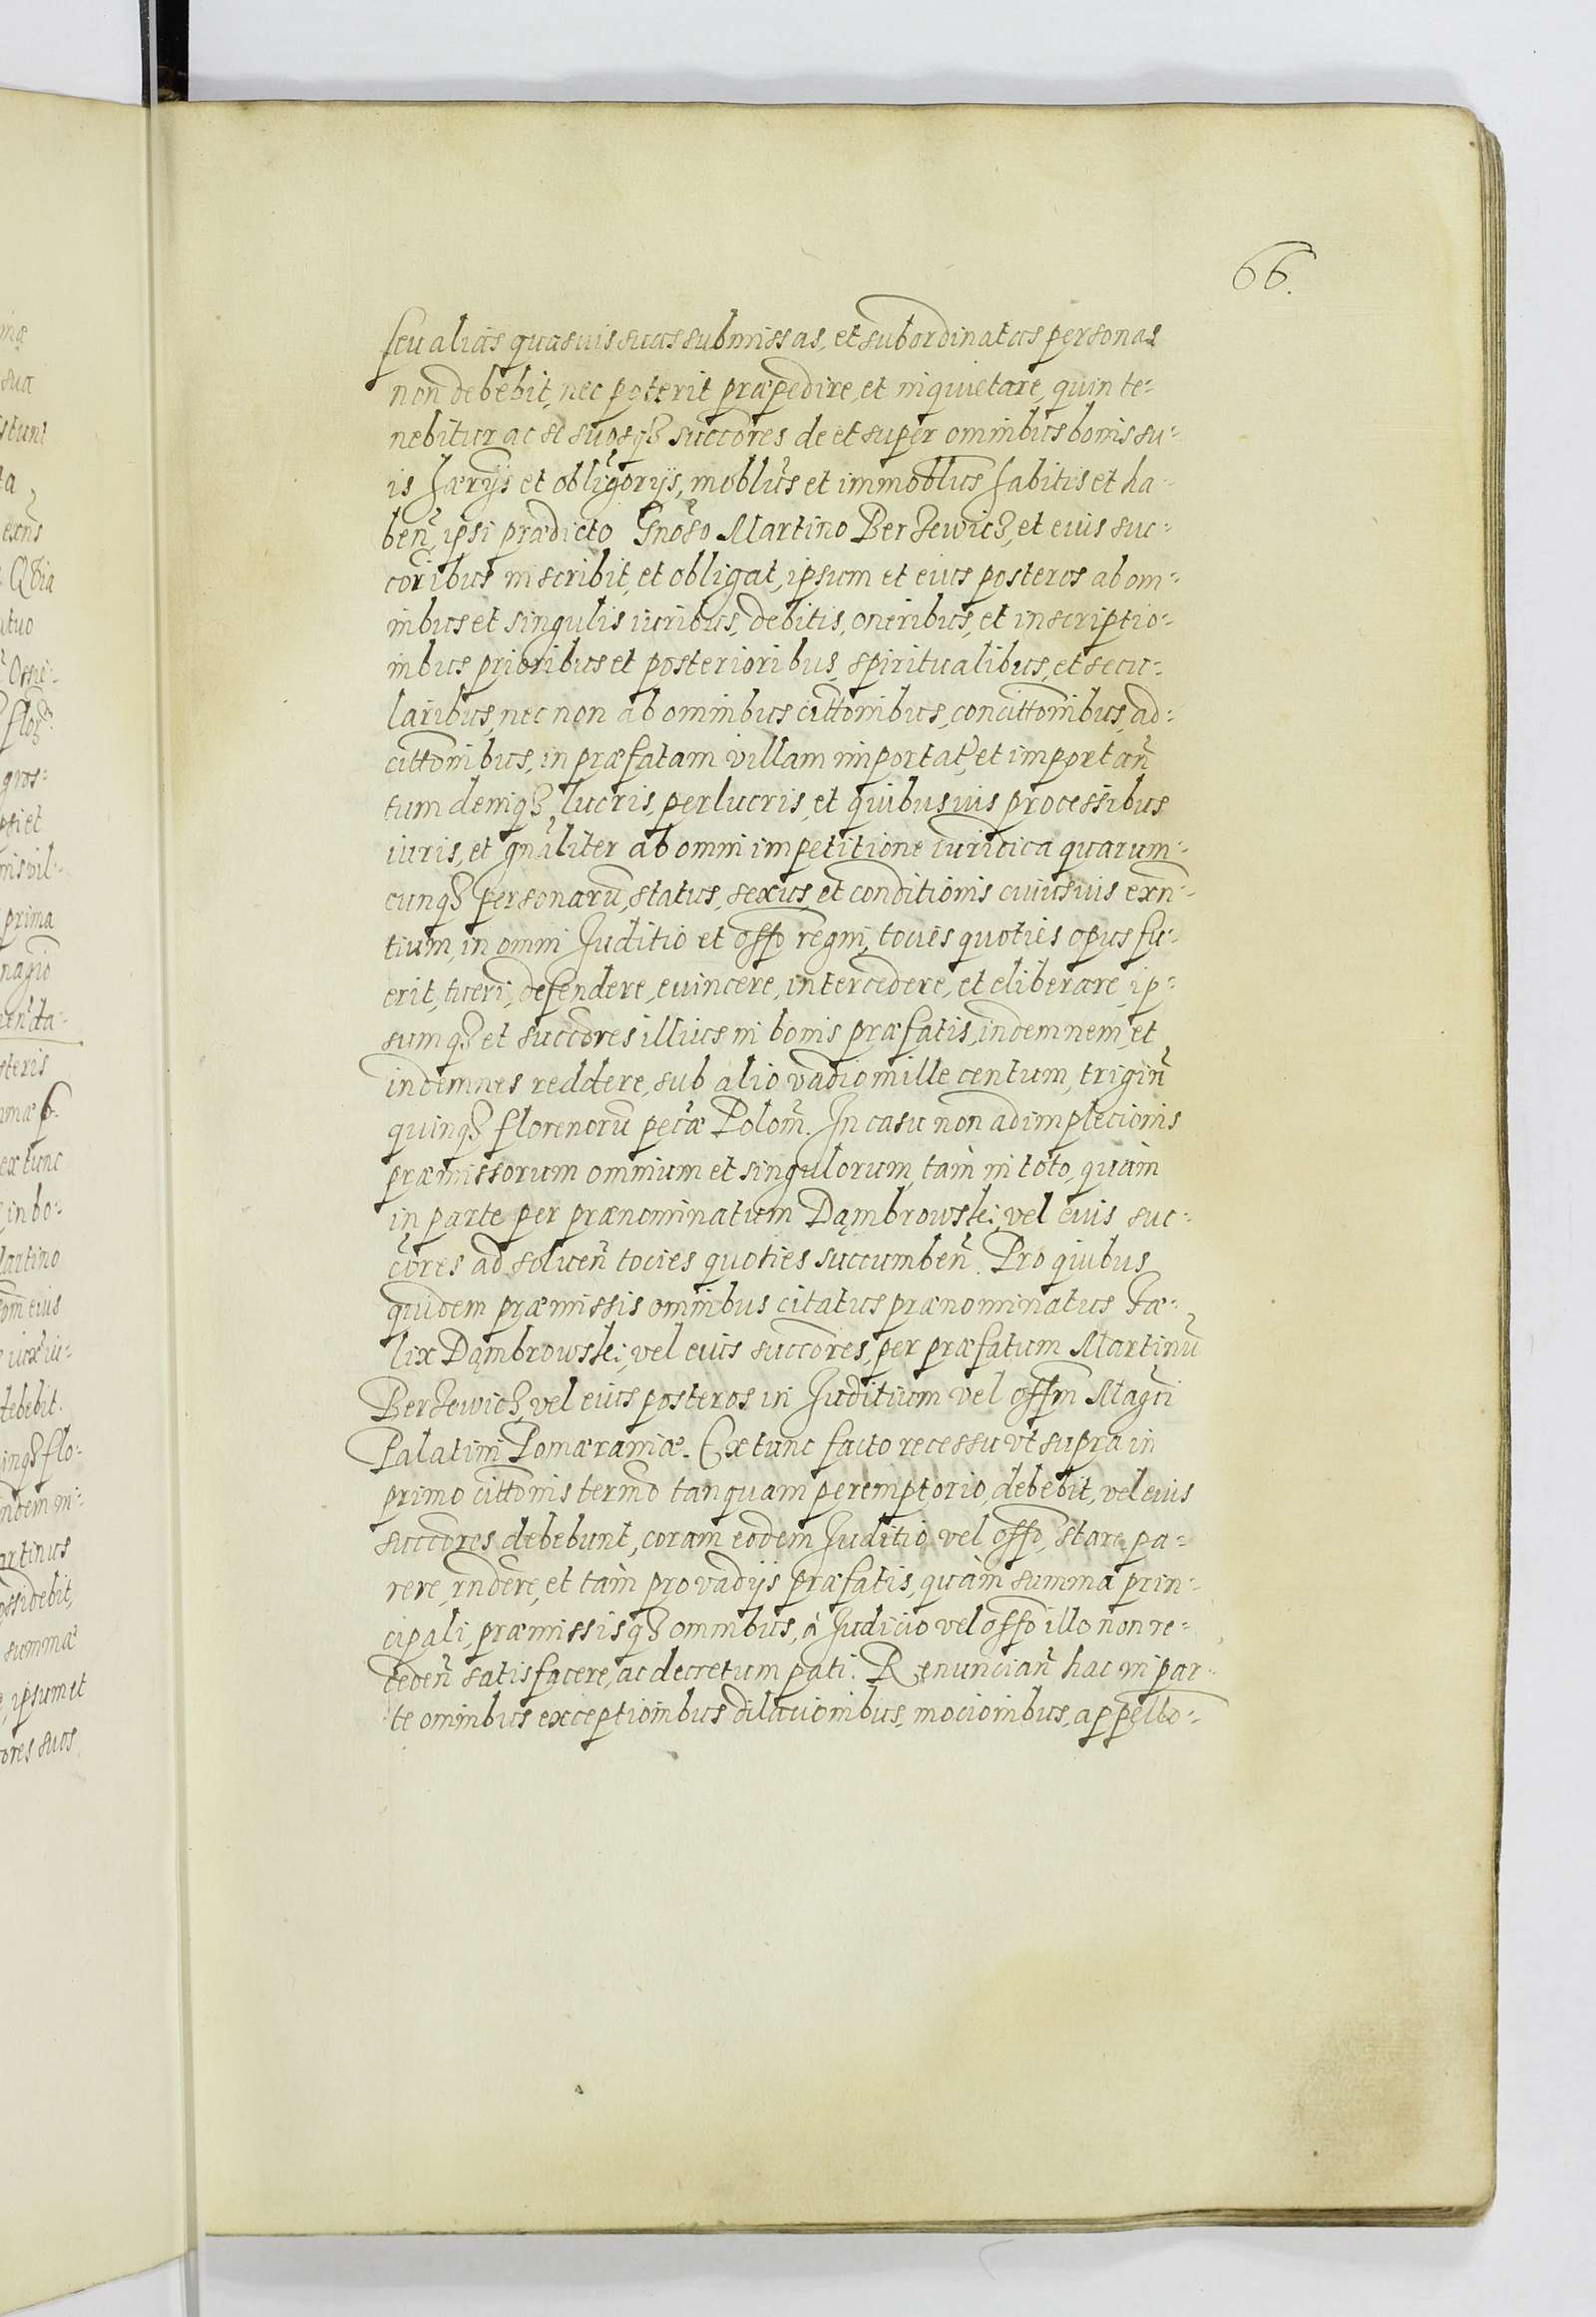 66.
seu alias quasuis suas submissas, et subordinatas personas
non debebit, nec poterit præpedire, et inquietare, quin te-
nebitur ac se suosq3 succores de et super omnibus bonis su-
is hærijs et obligorijs, moblius et immoblius habitis et ha-
ben, ipsi prædicto Gnoso Martino Berzewicz, et eius suc-
coribus inscribit, et obligat, ipsum et eius posteros ab om-
nibus et singulis iuribus, debitis, oneribus, et inscriptio-
nibus prioribus et posterioribus, spiritualibus, et secu-
laribus, nec non ab omnibus cittonibus, concittonibus, ad-
cittonibus, in præfatam villam importat, et importan
tum deniq3, lucris, perlucris, et quibusuis processibus
iuris, et gnaliter ab omni impetitione iuridica quarum-
cunq3 personaru, status, sexus, et conditionis cuiusuis exn-
tium, in omni Juditio et offo regni, toties quoties opus fu-
erit, tueri, defendere, euincere, intercedere, et eliberare, ip-
sumq3 et succores illius in bonis præfatis, indemnem, et
indemnes reddere, sub alio vadio mille centum, trigin
quinq3 florenoru pecæ Polom. In casu non adimplecionis
præmissorum omnium et singulorum, tàm in toto, quàm
in parte per prænominatum Dąmbrowski, vel eius suc-
cores ad soluen tocies quoties succumben. Pro quibus
quidem præmissis omnibus citatus prænominatus Fæ-
lix Dąmbrowski, vel eius succores, per præfatum Martinu
Berzewicz, vel eius posteros in Juditium vel offm Magci
Palatini Pomæraniæ. Extunc facto recessu vt supra in
primo cittonis termo tanquam peremptorio, debebit, vel eius
succores debebunt, coram eodem Juditio, vel offo, stare pa-
rere, rndere, et tàm pro vadijs præfatis, quàm summa prin-
cipali, præmissisq3 omnibus, à Judicio vel offo illo non re-
ceden satisfacere, ac decretum pati. Renuncian hac in par-
te omnibus exceptionibus dilacionibus, mocionibus, appello-